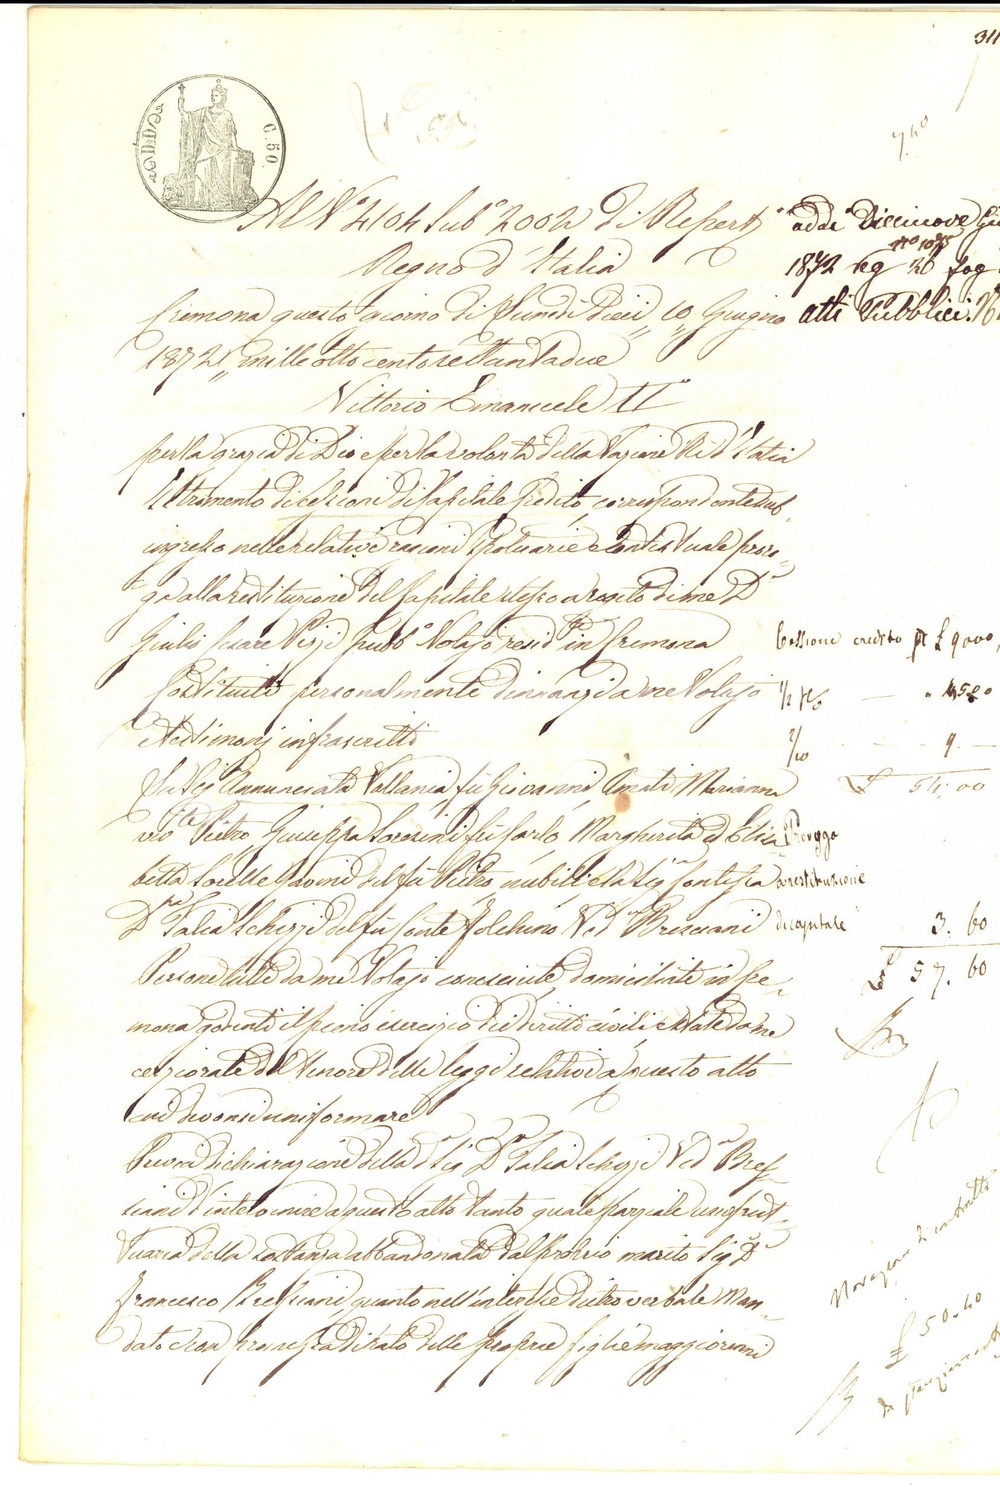 311
C. 50.
7.40
Al N° 4104 Sub° 2002 di Repert°
Regno d'Italia
Cremona questo giorno di Lunedì Dieci 10 Giugno
1872 mille otto cento settantadue
Vittorio Emanuele II°
per la grazia di Dio e per la volontà della Nazione Re d'Italia
Istromento di cessioni di Capitale Credito corrispondente sub-
ingresso nelle relative ragioni Ipotecarie e contestuale proro-
ga alla restituzione del Capitale stesso a rogito di me D.r
Giulio Cesare Pizzi pubb° Notajo resid.te in Cremona
Costituiti personalmente dinnanzi a me Notajo
e testimonj infrascritti
La Sig.a Annunciata Vallania fu Giovanni, Amati Marianna
Pietro Giuseppa Soresini fu Carlo, Margherita ed Elisa
betta Sorelle Gavini del fu Pietro nubili e la Sig.a Contessa
D.a Talia Schizzi del fu Conte Folchino V.d.a Bresciani
Persone tutte da me Notajo conosciute, domiciliate in Cre-
mona godenti il pieno esercizio dei diritti civili e state da me
cerziorate del tenore delle leggi relative a questo atto
cui devonsi uniformare
Previa dichiarazione della d.a Sig.a D.a Talia Schizzi V.d.a Bres-
ciani d'intervenire a questo atto tanto quale parziale usufrut-
tuaria della sostanza abbandonata dal proprio marito Sig.r D.r
Francesco Bresciani quanto nell'interesse dietro verbale Man-
dato che a promessa di rato delle proprie figlie maggiorenni
addì Diecinove Giu
n° 1075
1872 reg 36 fog
atti Pubblici. N
Cessione credito p £ 9000,
1/2 p% — " 45.00
2/10 — 9. —
£ 54,00
Prorogga
a restituzione
di capitale 3.60
£ 57.60
Novazione di contratto
£ 50.40